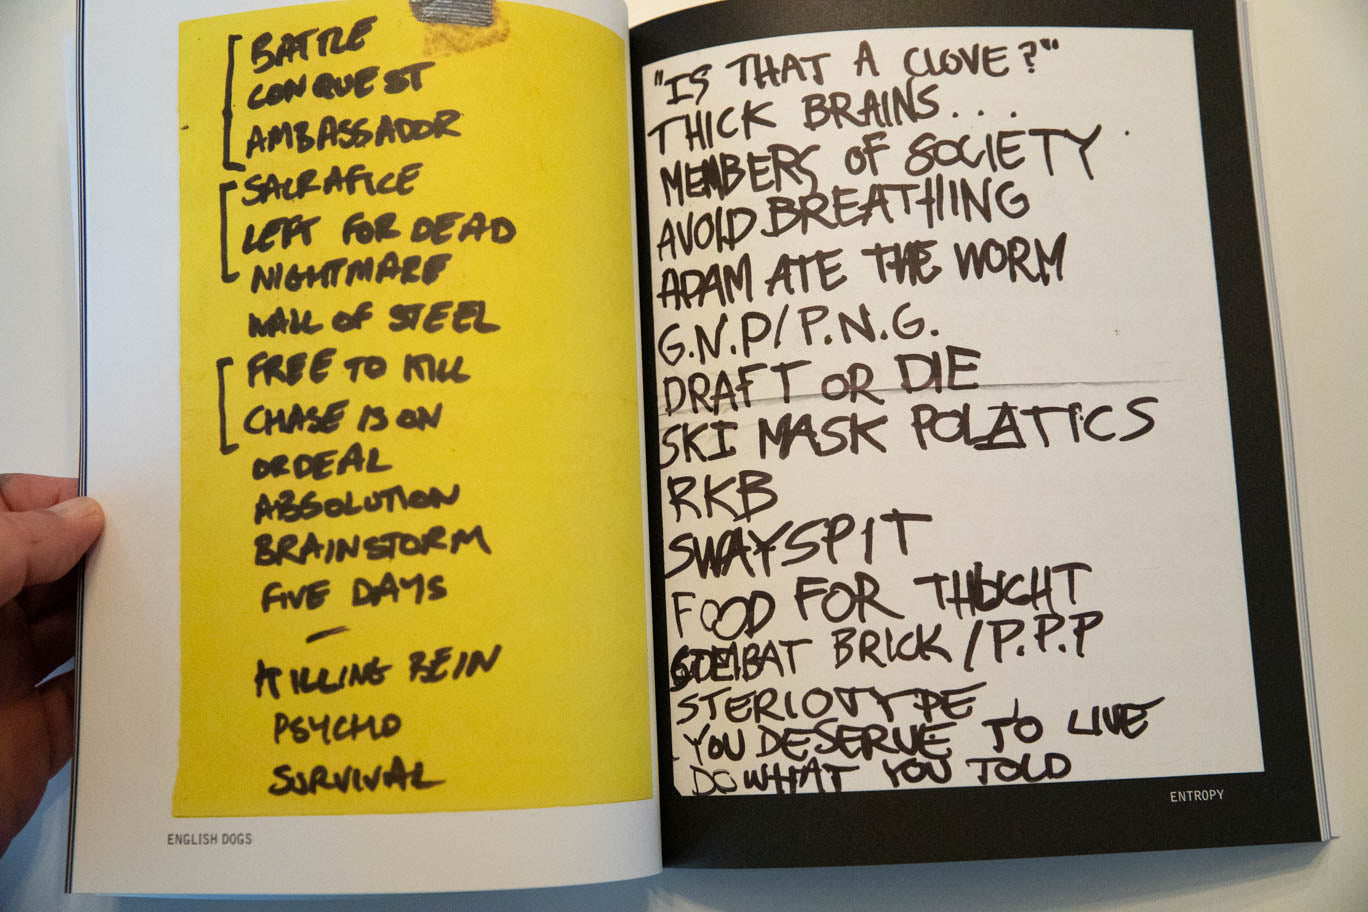 BATTLE
CONQUEST
AMBASSADOR
SACRAFICE
LEFT FOR DEAD
NIGHTMARE
WALL OF STEEL
FREE TO KILL
CHASE IS ON
ORDEAL
ABSOLUTION
BRAINSTORM
FIVE DAYS
—
KILLING BEIN
PSYCHO
SURVIVAL
ENGLISH DOGS
"IS THAT A CLOVE?"
THICK BRAINS...
MEMBERS OF SOCIETY
AVOID BREATHING
ADAM ATE THE WORM
G.N.P/P.N.G.
DRAFT OR DIE
SKI MASK POLATICS
RKB
SWAYSPIT
FOOD FOR
BRICK/P.P.P
STERIOTYPE
YOU DESERVE TO LIVE
DO WHAT YOU TOLD
ENTROPY